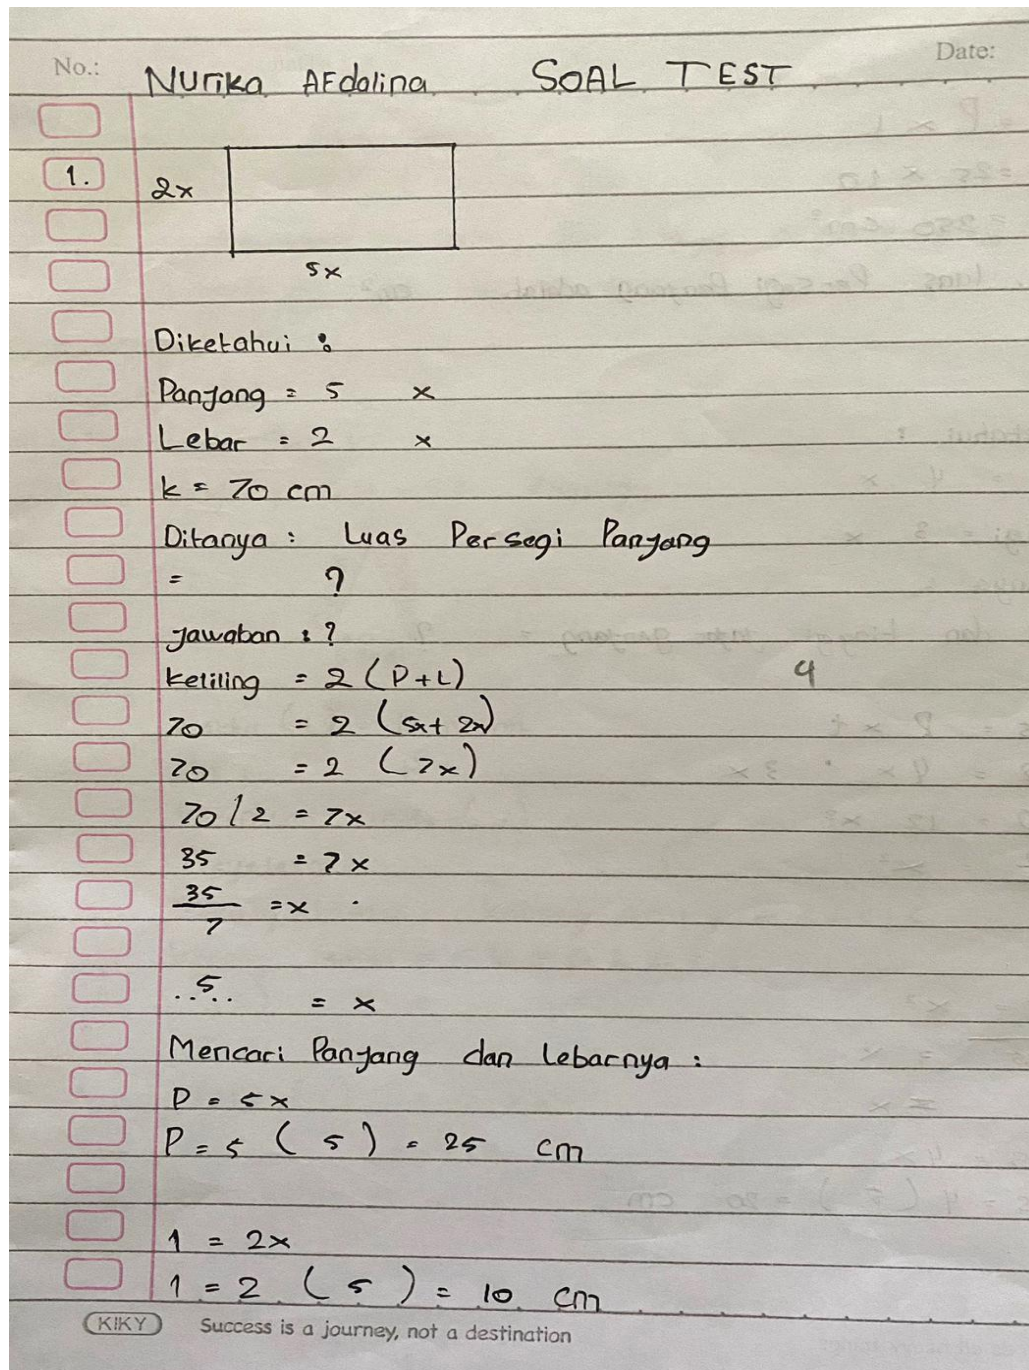 No.:
Date:
Nurika Afdalina SOAL TEST
1.
2x
5x
Diketahui :
Panjang = 5 x
Lebar = 2 x
k = 70 cm
Ditanya : Luas Persegi Panjang
= ?
Jawaban : ?
keliling = 2 (P+L)
4
70 = 2 (5x+ 2x)
70 = 2 (7x)
70/2 = 7x
35 = 7x
35/7 = x
..5.. = x
Mencari Panjang dan lebarnya :
P = 5x
P = 5 ( 5 ) = 25 cm
1 = 2x
1 = 2 ( 5 ) = 10 cm
KIKY Success is a journey, not a destination